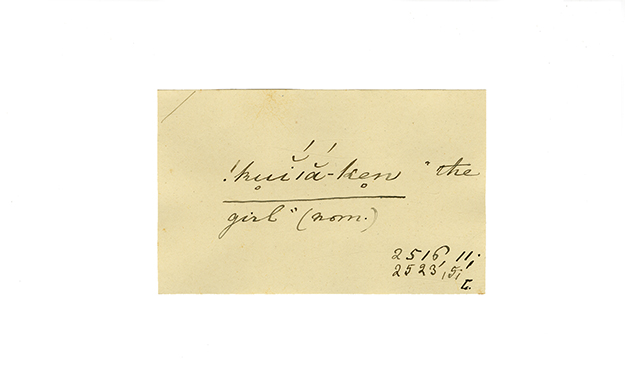 !ku̥ĭ́/ắ-ke̥n "the
girl" (nom.)
2516, 11;
2523, 5,
L.